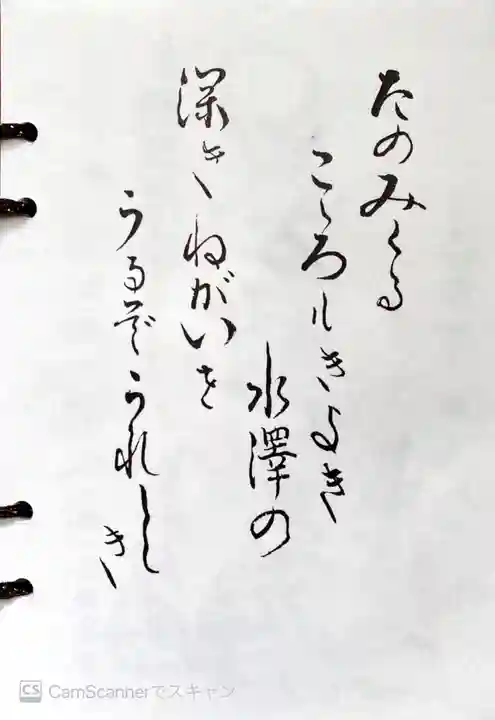 たのみくる
こゝろハきよき
水澤の
深きねがいを
うるぞうれしき
CS CamScannerでスキャン